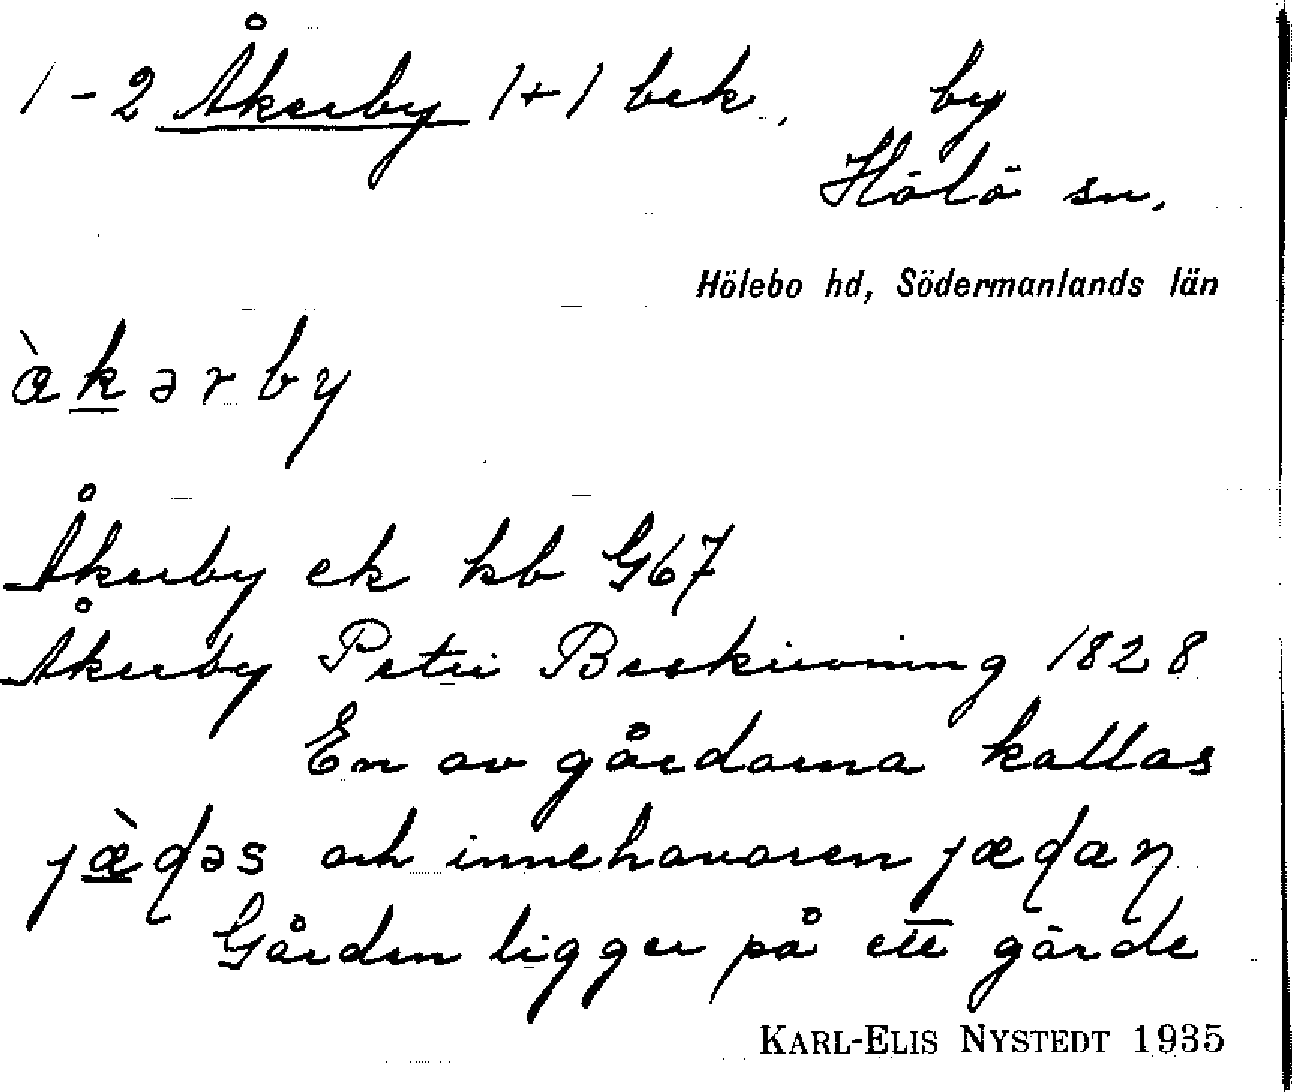 1-2 Åkerby 1+1 bek. by
Hölö sn.
Hölebo hd, Södermanlands län
àkərby
Åkerby ek kb G67
Åkerby Petri Beskrivning 1828
En av gårdarna kallas
jæ̀ɖəs och innehavaren jæɖaɳ
Gården ligger på ett gärde
KARL-ELIS NYSTEDT 1935